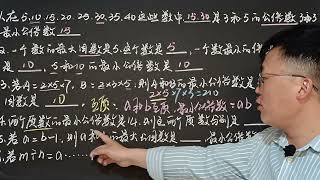 1.在5.10.15.20.25.30.35.40这些数中,15.30是3和5的公倍数,3和5
最小公倍数 15
2.一个数的最大因数是5.这个数是 5 ,一个数的最小倍
是 10
3.若A=2×5×7,B=2×3×5,则A和B的最小公倍数是
2×5×7×3=210
因数是 10 . 互质: a和b互质 最小公倍数=ab
4.两个质数的最小公倍数是14.这两个质数分别是
5.若a=b-1,则a和 的最大公因数是 ,最小公倍数
6.若m÷n=a……